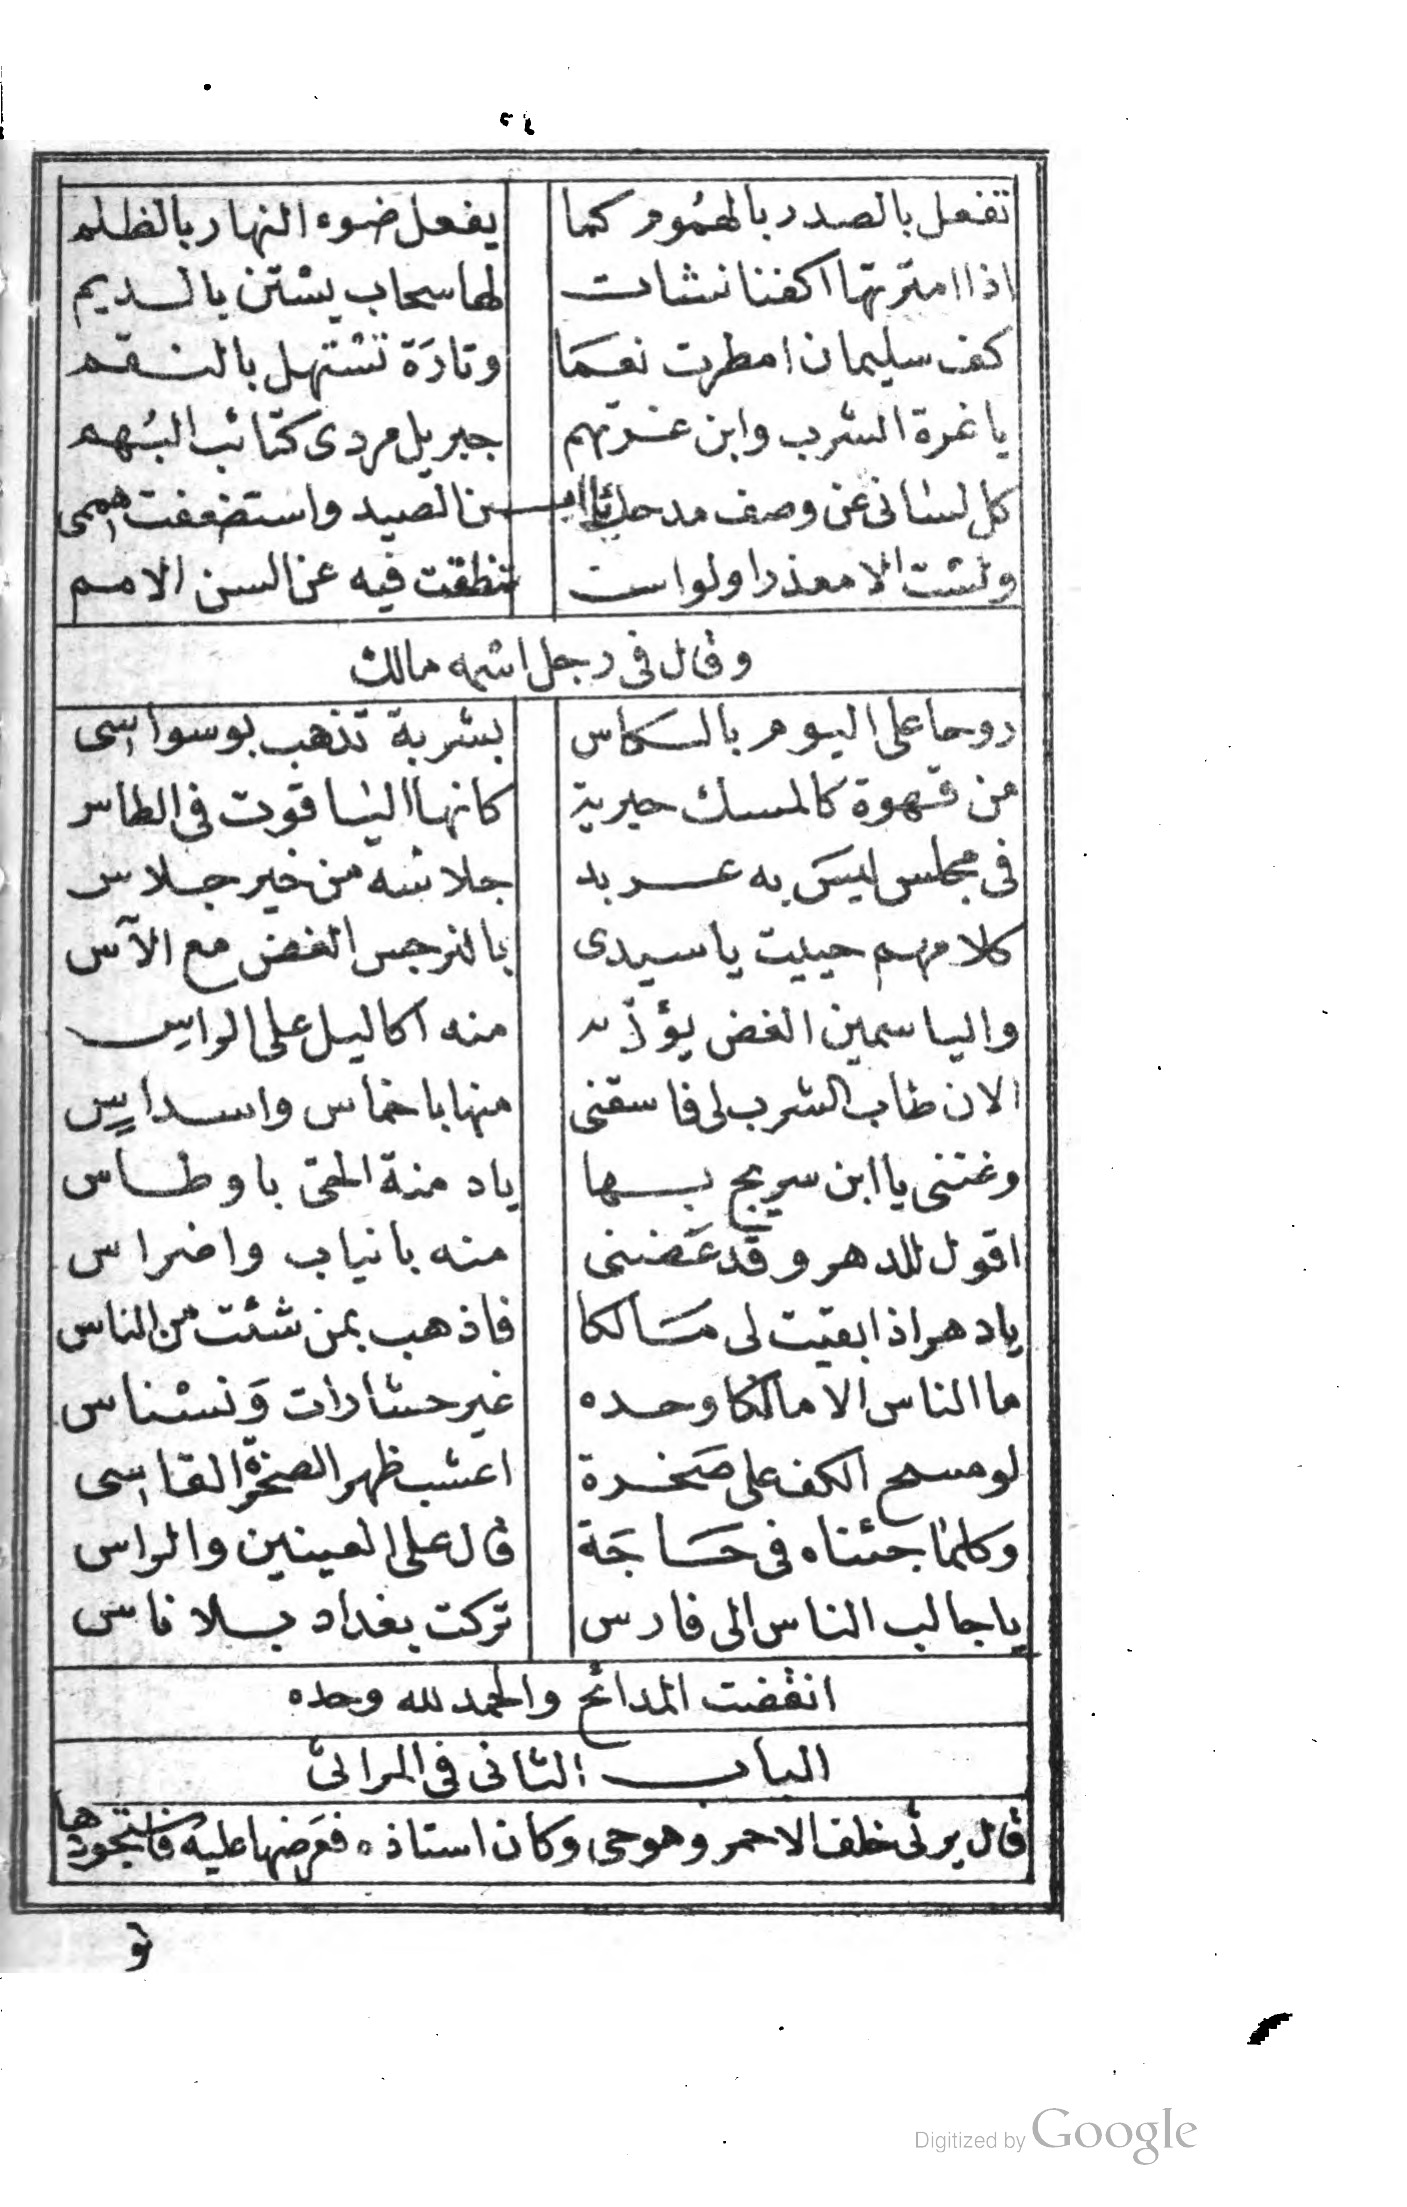 تفعل بالصدر بالهُمُوم كما يفعل ضوء النهار بالظلم
اذا امترتها اكفنا نشات لها سحاب يستن بالديم
كف سليمان امطرت نعمَا وتارَة تستهل بالنقم
يا غرة الشرب وابن غرتهم جبريل مردى كتائب البُهم
كل لسانى عن وصف مدحك يا ابن الصيد واستضعفت هممى
ولست الا معذرا ولو است تنطقت فيه عن السن الامم
وقال فى رجل اسمه مالك
روحا على اليوم بالكاس بشربة تذهب بوسواسى
من قهوة كالمسك حيرية كانها الياقوت فى الطاس
فى مجلس ليسَ به عربد جلاسه من خير جلاس
كلامهم حييت يا سيدى بالنرجس الغض مع الآس
والياسمين الغض يؤذ منه اكاليل على الراس
الان طاب الشرب لى فاسقنى منها باخماس واسداس
وغننى يا ابن سريج بها ياد منة الحى باوطاس
اقول للدهر وقد عَضنى منه بانياب واضراس
يا دهر اذ ابقيت لى مَالكا فاذهب بمن شئت من الناس
ما الناس الا مالكا وحده غير حشارات وَنسناس
لو مسح الكف على صَخرة اعشب ظهر الصخرة القاسى
وكلما جئناه فى حَاجَة قال على العينين والراس
يا جالب الناس الى فارس تركت بغداد بلا ناس
انقضت المدائح والحمد لله وحده
الباب الثانى فى المراثى
قال يرثى خلف الاحمر وهو حى وكان استاذه فعَرضها عليه فاستجودها